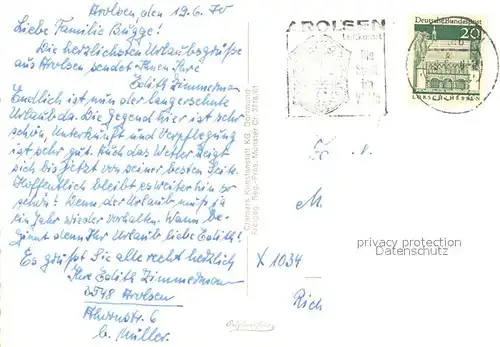 Arolsen, den 19.6.70
Liebe Familie Brügge!
Die herzlichsten Urlaubsgrüße
aus Arolsen sendet Ihnen Ihre
Edith Zimmermann
Endlich ist nun der langersehnte
Urlaub da. Die Gegend hier ist sehr
schön, Unterkunft und Verpflegung
ist sehr gut. Auch das Wetter zeigt
sich bis jetzt von seiner besten Seite.
Hoffentlich bleibt es weiterhin so
schön! Denn der Urlaub muß ja
ein Jahr wieder vorhalten. Wann be-
ginnt denn Ihr Urlaub liebe Edith?
Es grüßt Sie alle recht herzlich
Ihre Edith Zimmermann
3548 Arolsen
6
b. Müller.
Cramers Kunstanstalt KG, Dortmund
AROLSEN
Deutsche Bundespost
20
LORSCH/HESSEN
X 1034
privacy protection
Datenschutz